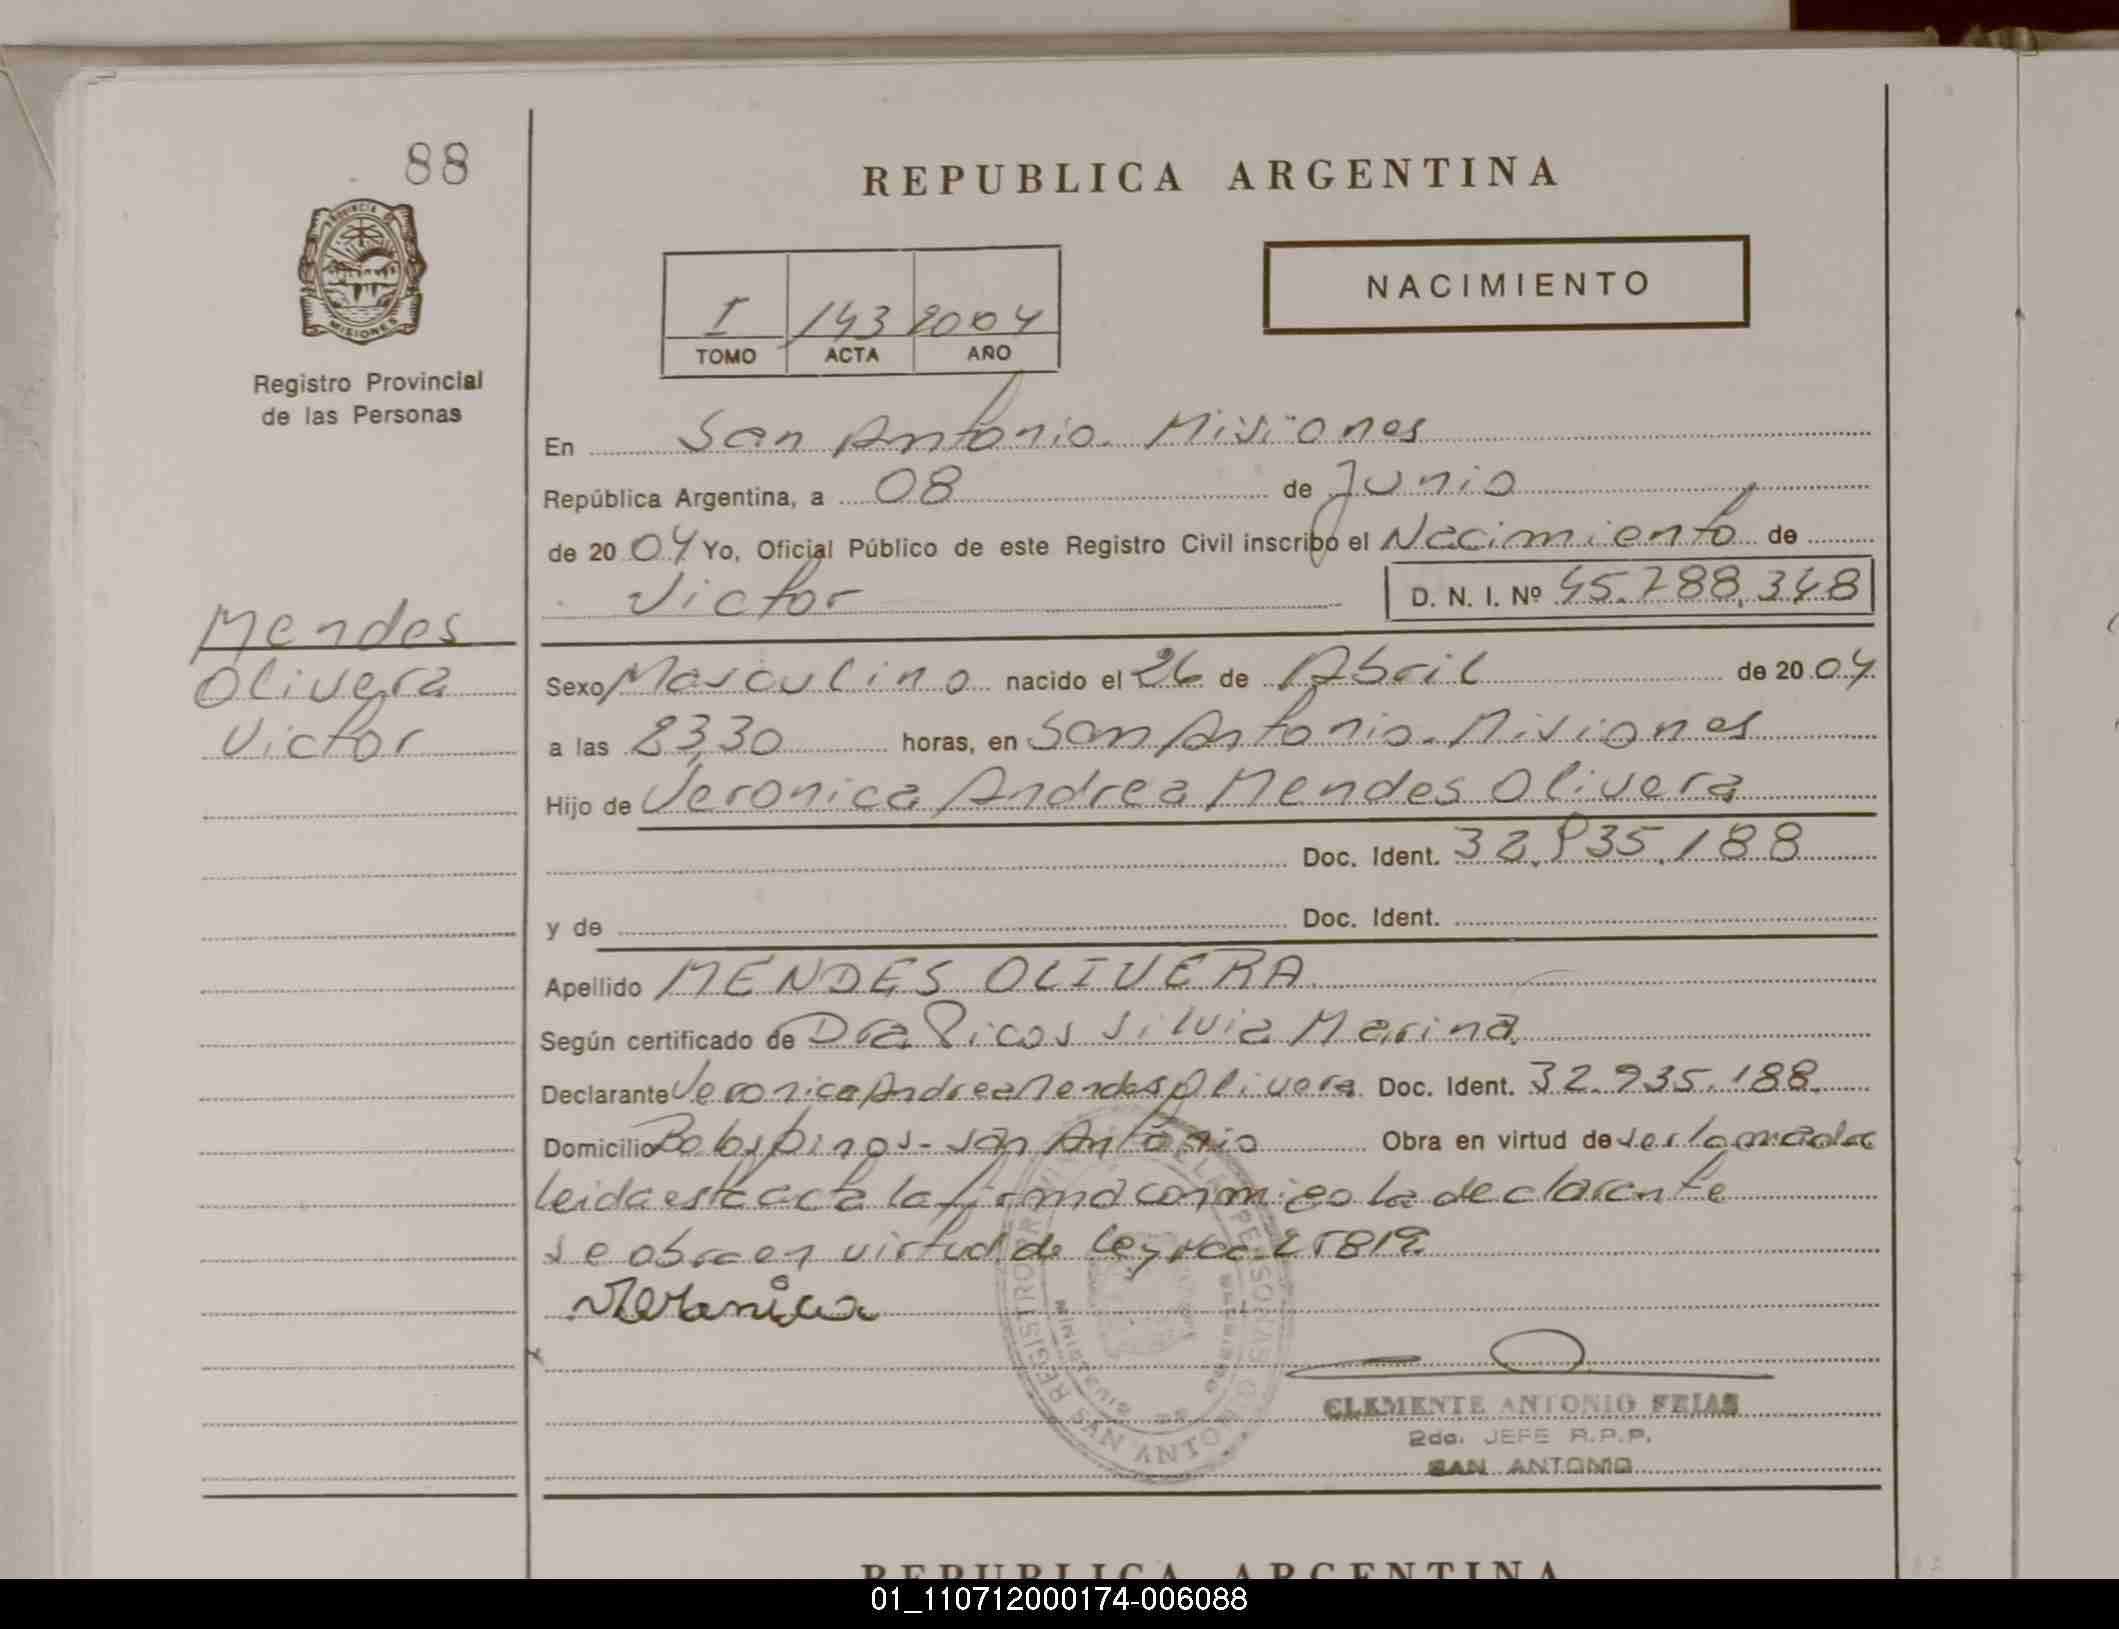 88
REPUBLICA ARGENTINA
PROVINCIA DE
MISIONES
Registro Provincial
de las Personas
NACIMIENTO
I 143 2004
TOMO ACTA AÑO
En San Antonio. Misiones
República Argentina, a 08 de Junio
de 2004 Yo, Oficial Público de este Registro Civil inscribo el Nacimiento de
Victor D. N. I. Nº 45.288.348
Mendes
Olivera
Victor
Sexo Masculino nacido el 26 de Abril de 2004
a las 23,30 horas, en San Antonio. Misiones
Hijo de Veronica Andrea Mendes Olivera
Doc. Ident. 32.935.188
y de Doc. Ident.
Apellido MENDES OLIVERA
Según certificado de Dra Picos Silvia Marina
Declarante Veronica Andrea Mendes Olivera Doc. Ident. 32.935.188
Domicilio Bo los pinos - San Antonio Obra en virtud de ser la madre
leida esta acta la firma conmigo la declarante
se obra en virtud de ley Nac. 25819
Veronica
REGISTRO PROVINCIAL DE LAS PERSONAS
SAN ANTONIO
CLEMENTE ANTONIO FRIAS
2do. JEFE R.P.P.
SAN ANTONIO
REPUBLICA ARGENTINA
01_110712000174-006088